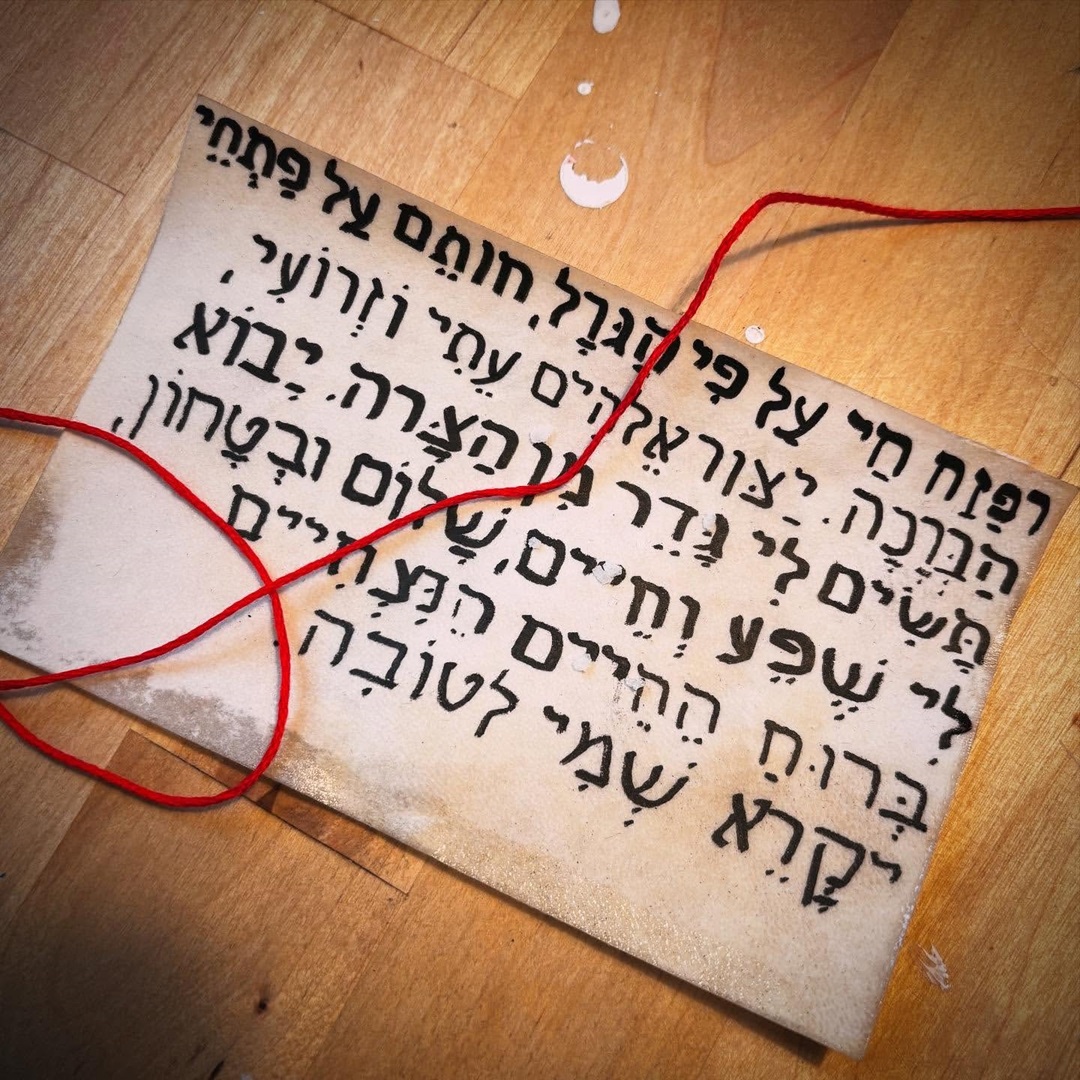 רפזח חי על פי הגרל, חותם על פתחי
הברכה. יצור אלהים עתי וזרועי,
תשים לי גדר מן הצרה. יבוא
לי שפע וחיים, שלום ובטחון,
ברוח החיים הנצחיים.
יקרא שמי לטובה